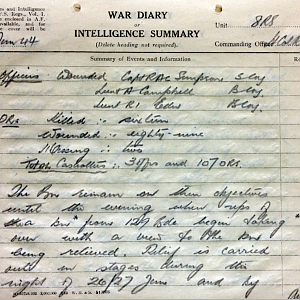 WAR DIARY
8RS
and Intelligence
in F.S. Regs., Vol. I
is enclosed in A.F.
if this is not available, and for
or
INTELLIGENCE SUMMARY
(Delete heading not required).
Commanding Officer
Jun 44
Summary of Events and Information
Officers: Wounded Capt RAC Simpson S Coy
Lieut A Campbell B Coy
Lieut RI B Coy
ORs Killed :- sixteen
Wounded :- eighty-nine
Missing :- two
Total Casualties : 3 offrs and 107 ORs.
The Bn remain on their objectives
until the evening when reps of
a Bn from 129 Bde begin taking
over with a view to the Bn
being relieved. Relief is carried
out in stages during the
night of 26/27 Jun and by